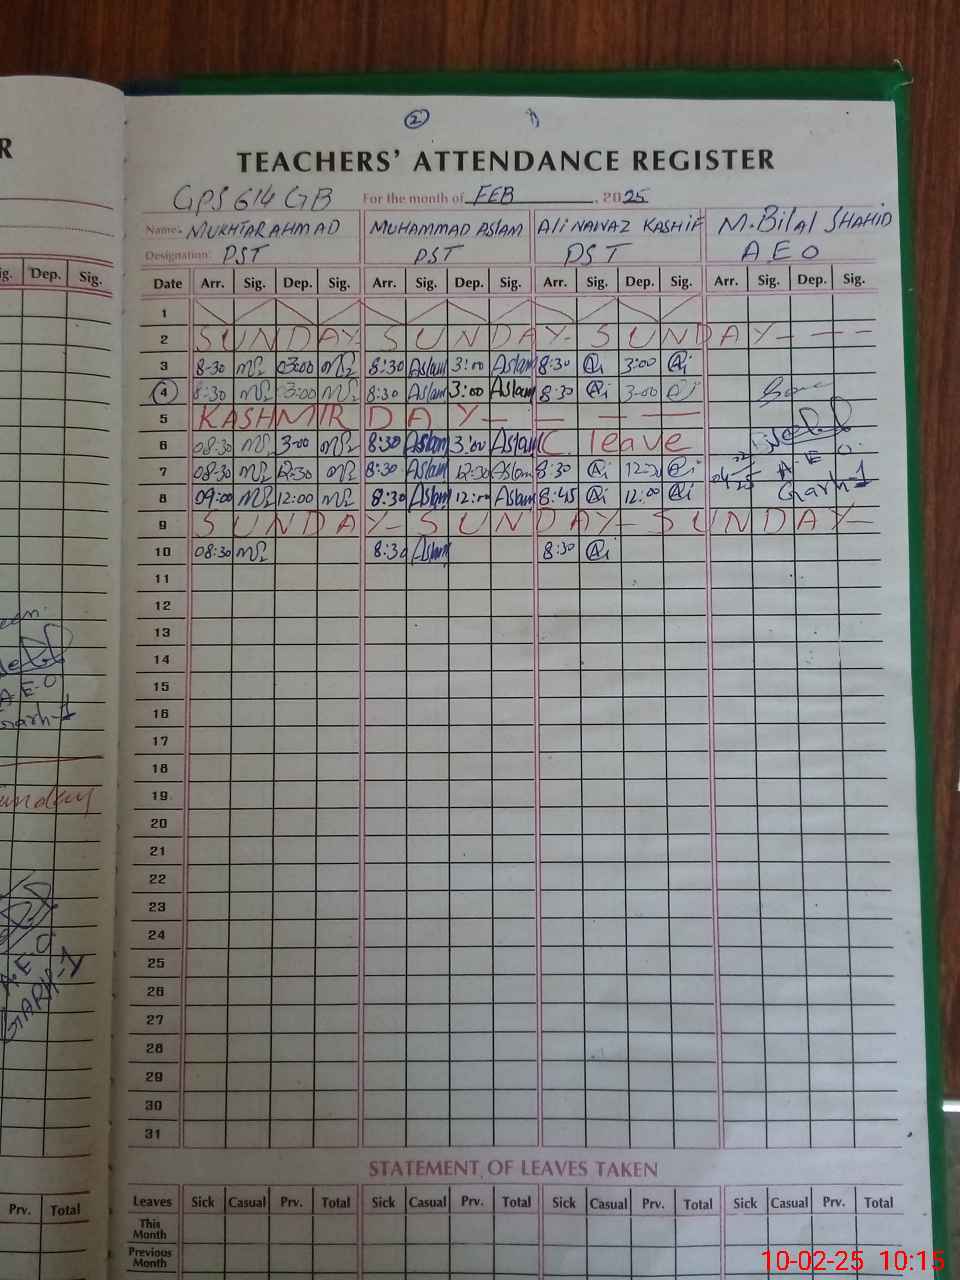 R
2
TEACHERS' ATTENDANCE REGISTER
GPS 614 GB For the month of FEB, 2025
Name: MUKHTAR AHMAD MUHAMMAD ASLAM Ali NAWAZ KASHIF M. Bilal SHAHID
Designation: PST PST PST A E O
ig. Dep. Sig.
Date Arr. Sig. Dep. Sig. Arr. Sig. Dep. Sig. Arr. Sig. Dep. Sig. Arr. Sig. Dep. Sig.
1
2 SUNDAY- SUNDAY- SUNDAY- - - -
3 8-30 03:00 8:30 Aslam 3:00 Aslam 8:30 3:00
4 8:30 03:00 8:30 Aslam 3:00 Aslam 8:30 3-00
5 KASHMIR DAY - - - -
6 08:30 3-00 8:30 Aslam 3:00 Aslam C. leave
7 08:30 12:30 8:30 Aslam 12:30 Aslam 8:30 12:30
A. E O.
8 09:00 12:00 8:30 Aslam 12:00 Aslam 8:45 12:00
Garh-1
9 SUNDAY- SUNDAY- SUNDAY-
10 08:30 8:30 Aslam 8:30
11
12
13
14
15
16
17
18
19
20
21
22
23
24
25
26
27
28
29
30
31
A.E.O
Garh-1
Sunday
A.E.O
GARH-1
STATEMENT OF LEAVES TAKEN
Prv. Total
Leaves Sick Casual Prv. Total Sick Casual Prv. Total Sick Casual Prv. Total Sick Casual Prv. Total
This
Month
Previous
Month
10-02-25 10:15